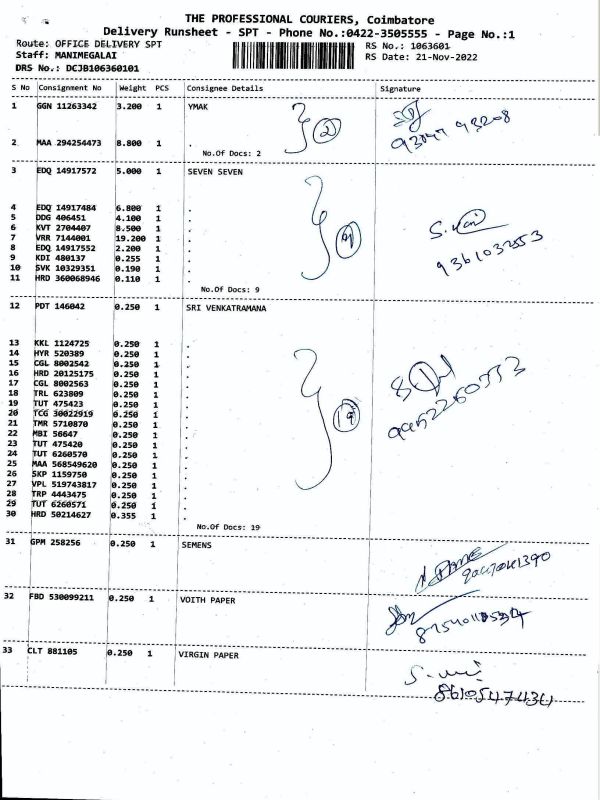 THE PROFESSIONAL COURIERS, Coimbatore
Delivery Runsheet - SPT - Phone No.:0422-3505555 - Page No.:1
Route: OFFICE DELIVERY SPT RS No.: 1063601
Staff: MANIMEGALAI RS Date: 21-Nov-2022
DRS No.: DCJB106360101
S No Consignment No Weight PCS Consignee Details Signature
1 GGN 11263342 3.200 1 YMAK
2
2 MAA 294254473 8.800 1 .
No.Of Docs: 2
3 EDQ 14917572 5.000 1 SEVEN SEVEN
4 EDQ 14917484 6.800 1 .
5 DDG 406451 4.100 1 .
6 KVT 2704407 8.500 1 .
7 VRR 7144001 19.200 1 .
8 EDQ 14917552 2.200 1 .
9 KDI 480137 0.255 1 .
10 SVK 10329351 0.190 1 .
11 HRD 360068946 0.110 1 .
No.Of Docs: 9
12 PDT 146042 0.250 1 SRI VENKATRAMANA
13 KKL 1124725 0.250 1 .
14 HYR 520389 0.250 1 .
15 CGL 8002542 0.250 1 .
16 HRD 20125175 0.250 1 .
17 CGL 8002563 0.250 1 .
18 TRL 623809 0.250 1 .
19 TUT 475423 0.250 1 .
20 TCG 30022919 0.250 1 .
21 TMR 5710870 0.250 1 .
22 MBI 56647 0.250 1 .
23 TUT 475420 0.250 1 .
24 TUT 6260570 0.250 1 .
25 MAA 568549620 0.250 1 .
26 SKP 1159750 0.250 1 .
27 VPL 519743817 0.250 1 .
28 TRP 4443475 0.250 1 .
29 TUT 6260571 0.250 1 .
30 HRD 50214627 0.355 1 .
19
No.Of Docs: 19
31 GPM 258256 0.250 1 SEMENS
32 FBD 530099211 0.250 1 VOITH PAPER
33 CLT 881105 0.250 1 VIRGIN PAPER
8610547434